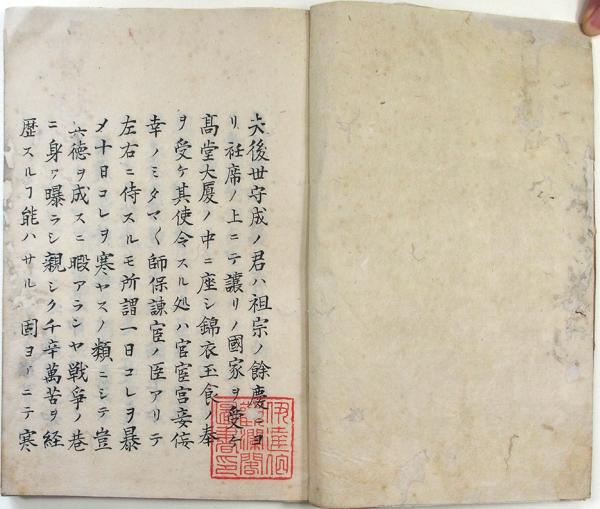 夫後世守成ノ君ハ祖宗ノ餘慶ニヨ
リ衽席ノ上ニテ讓リノ國家ヲ受ケ
髙堂大厦ノ中ニ座シ錦衣玉食ノ奉
ヲ受ケ其使令スル処ハ官宦宮妾佞
幸ノミタマ〱師保諫官ノ臣アリテ
左右ニ侍スルモ所謂一日コレヲ暴
メ十日コレヲ寒ヤスノ類ニシテ豈
其徳ヲ成スニ暇アランヤ戦爭ノ巷
ニ身ヲ曝ラシ親シク千辛萬苦ヲ経
歴スルヿ能ハサル固ヨリニテ寒
伊達伯
觀瀾閣
圖書印